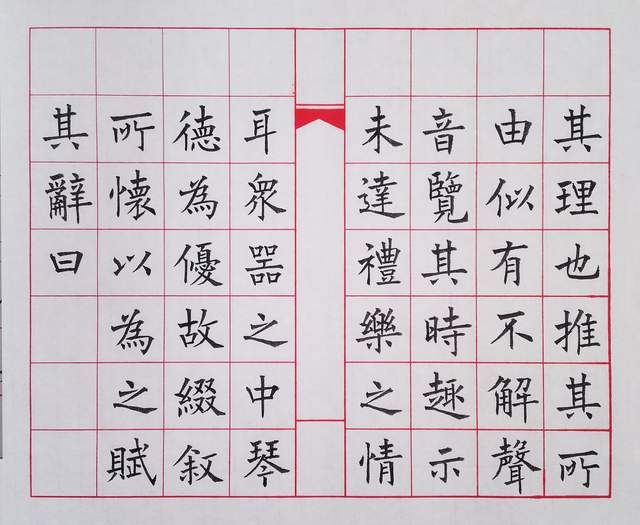 其理也推其所
由似有不解聲
音覽其時趣示
未達禮樂之情
耳眾器之中琴
德為優故綴叙
所懷以為之賦
其辭曰